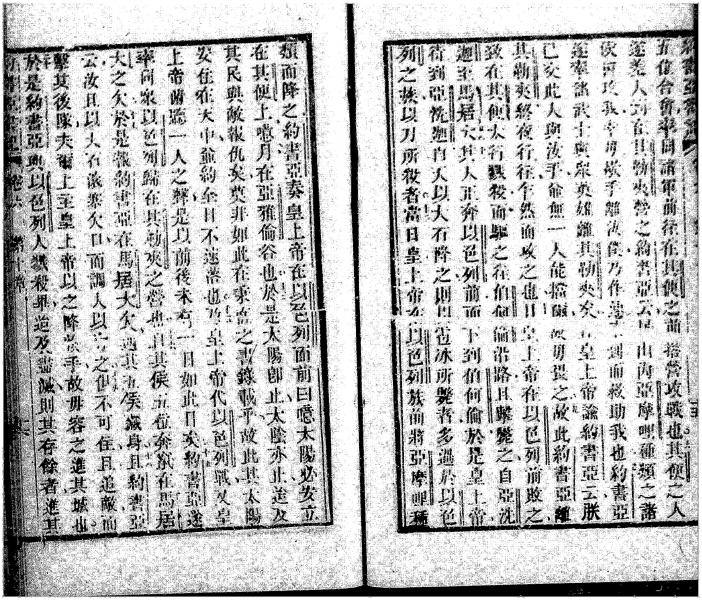 五位合會率同諸軍前往在其便之前搭營攻戰也其便之人
遂差人到在其勒夾營之約書亞云居山內亞摩哩種類之諸
侯攻我今毋歇手離汝僕乃作速到而救助我也約書亞
遂率諸武士與眾英雄離其勒夾矣皇上帝諭約書亞云朕
已交此人與汝手爺無一人能擋爾故毋畏之故此約書亞離
其勒夾終夜行往乍然而攻之也皇上帝在以色列前敗之
致在其便大行戮殺而驅之往伯何倫沿路且擊斃之自亞洗
迦至馬居大其人正奔以色列前面下到伯何倫於是皇上帝
待到亞洗迦自天以大石降之則因雹冰所斃者多過於以色
列之族以刀所殺者當日皇上帝在以色列族前將亞摩哩種
類而降之約書亞奏皇上帝在以色列面前曰噫太陽必安立
在其便上噫月在亞雅倫谷也於是太陽卽止太陰亦止迨及
其民與敵報仇矣莫非如此在秉直之書錄載乎故此其太陽
安住在天中爺約全日不速落也乃皇上帝代以色列戰又皇
上帝俯聽一人之聲是以前後未有一日如此日矣約書亞遂
率同眾以色列歸在其勒夾之營也且其侯五位奔竄在馬居
大之穴於是報約書亞在馬居大穴遇其五侯藏身且約書亞
云汝且以大石滾塞穴口而調人以守之但不可住且追敵而
擊其後陳夫爾上主皇上帝以之降於手故毋容之進其城也
於是約書亞與以色列人戮殺畢迨及盡滅則其存餘者進其